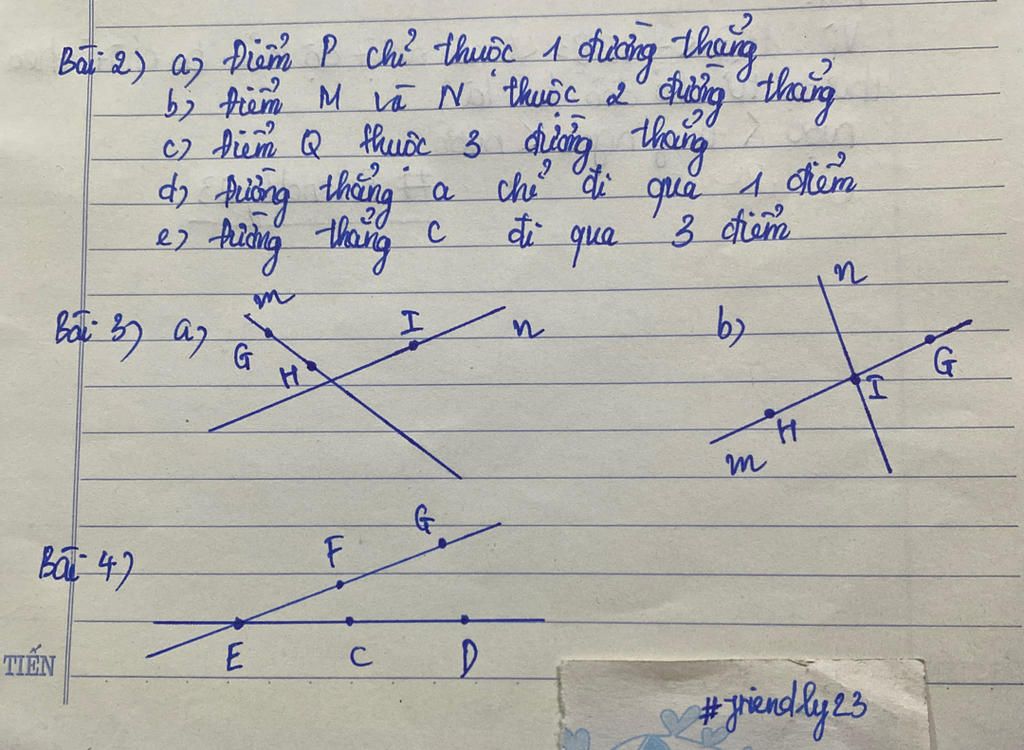 Bài 2) a) Điểm P chỉ thuộc 1 đường thẳng
b) Điểm M và N thuộc 2 đường thẳng
c) Điểm Q thuộc 3 đường thẳng
d) Đường thẳng a chỉ đi qua 1 điểm
e) Đường thẳng c đi qua 3 điểm
Bài 3) a) m G H I n b) n G I H m
Bài 4) F G
E C D
TIẾN
#friendly23